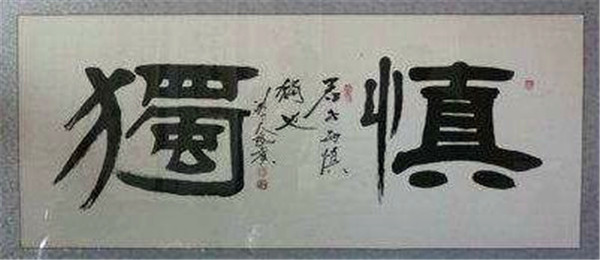 慎獨
君子必慎
獨也